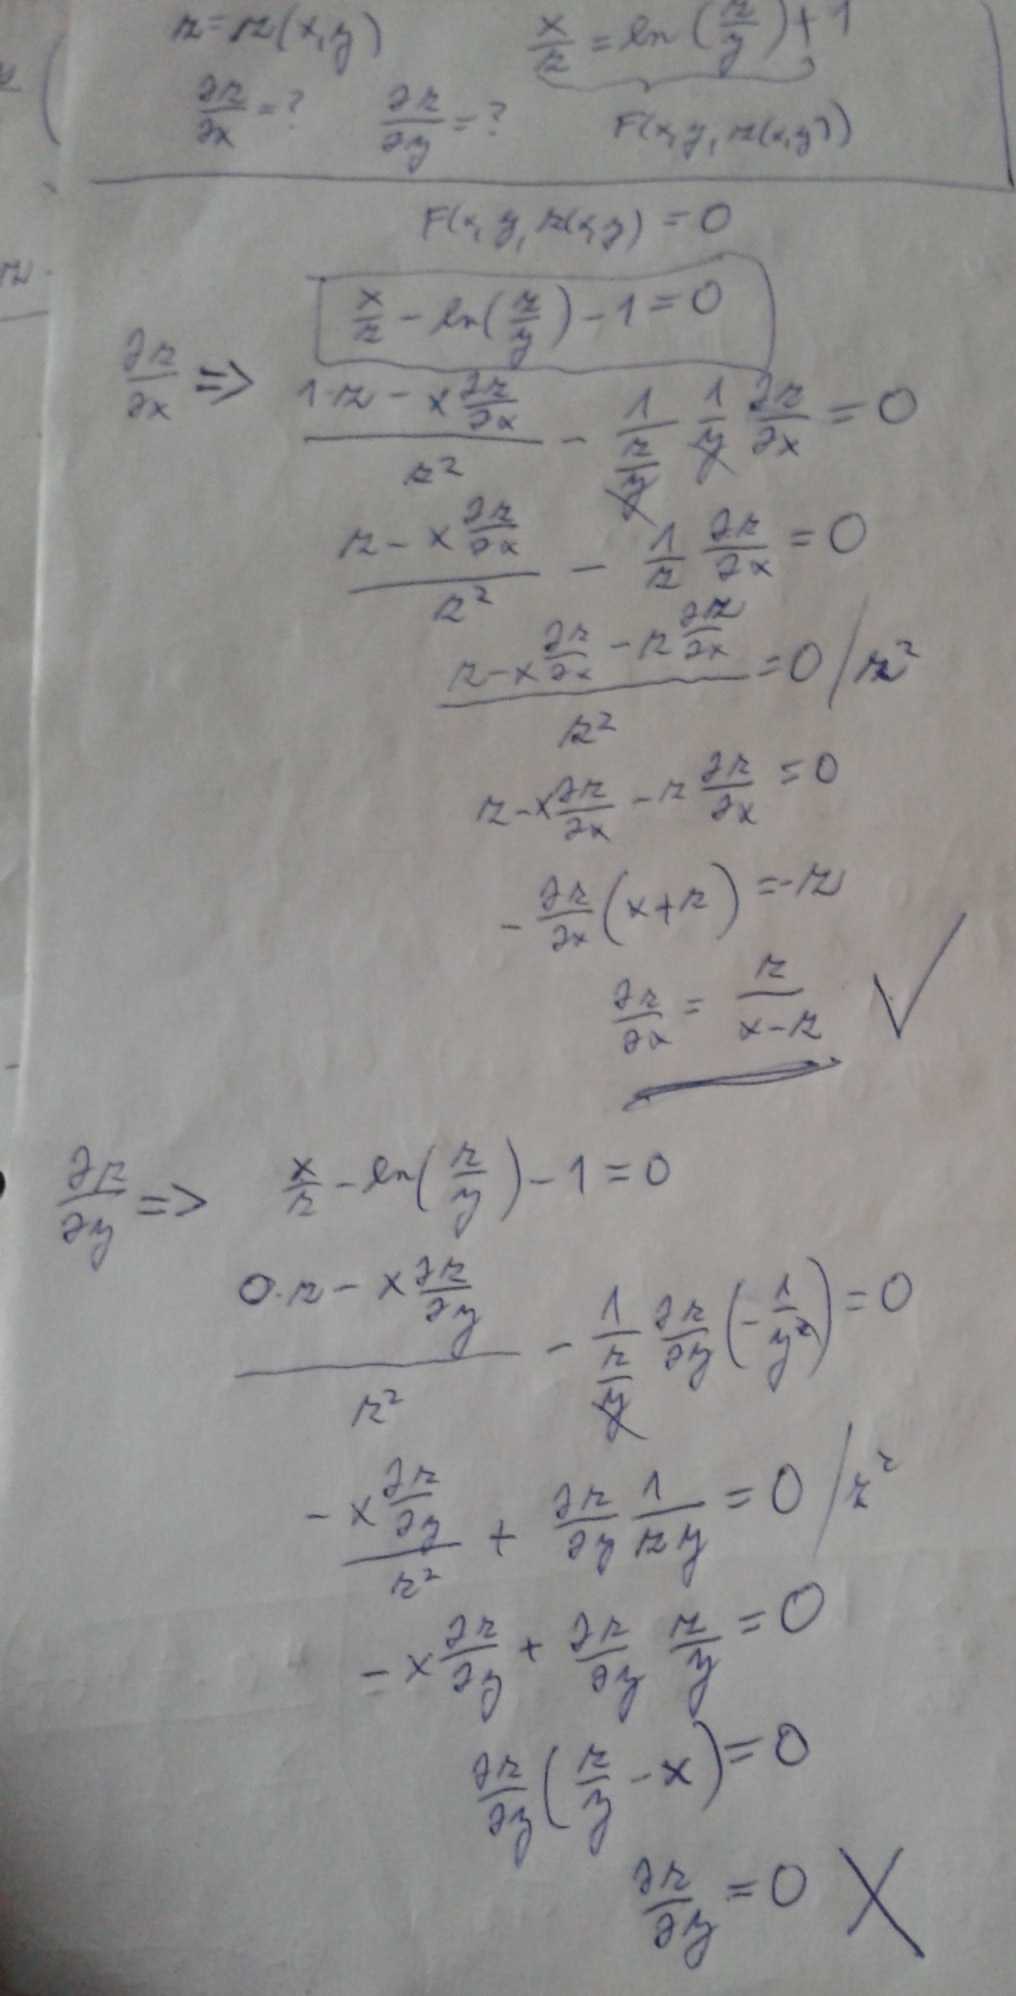 z = z(x,y)   x/z = ln(z/y) + 1
∂z/∂x = ?   ∂z/∂y = ?   F(x, y, z(x,y))
F(x, y, z(x,y)) = 0
x/z - ln(z/y) - 1 = 0
∂z/∂x => (1·z - x ∂z/∂x)/z² - 1/(z/y) 1/y ∂z/∂x = 0
(z - x ∂z/∂x)/z² - 1/z ∂z/∂x = 0
(z - x ∂z/∂x - z ∂z/∂x)/z² = 0 / z²
z - x ∂z/∂x - z ∂z/∂x = 0
- ∂z/∂x (x + z) = -z
∂z/∂x = z/(x - z) ✓
∂z/∂y => x/z - ln(z/y) - 1 = 0
(0·z - x ∂z/∂y)/z² - 1/(z/y) ∂z/∂y (-1/y²) = 0
(-x ∂z/∂y)/z² + ∂z/∂y 1/(zy) = 0 / z²
-x ∂z/∂y + ∂z/∂y z/y = 0
∂z/∂y (z/y - x) = 0
∂z/∂y = 0 X